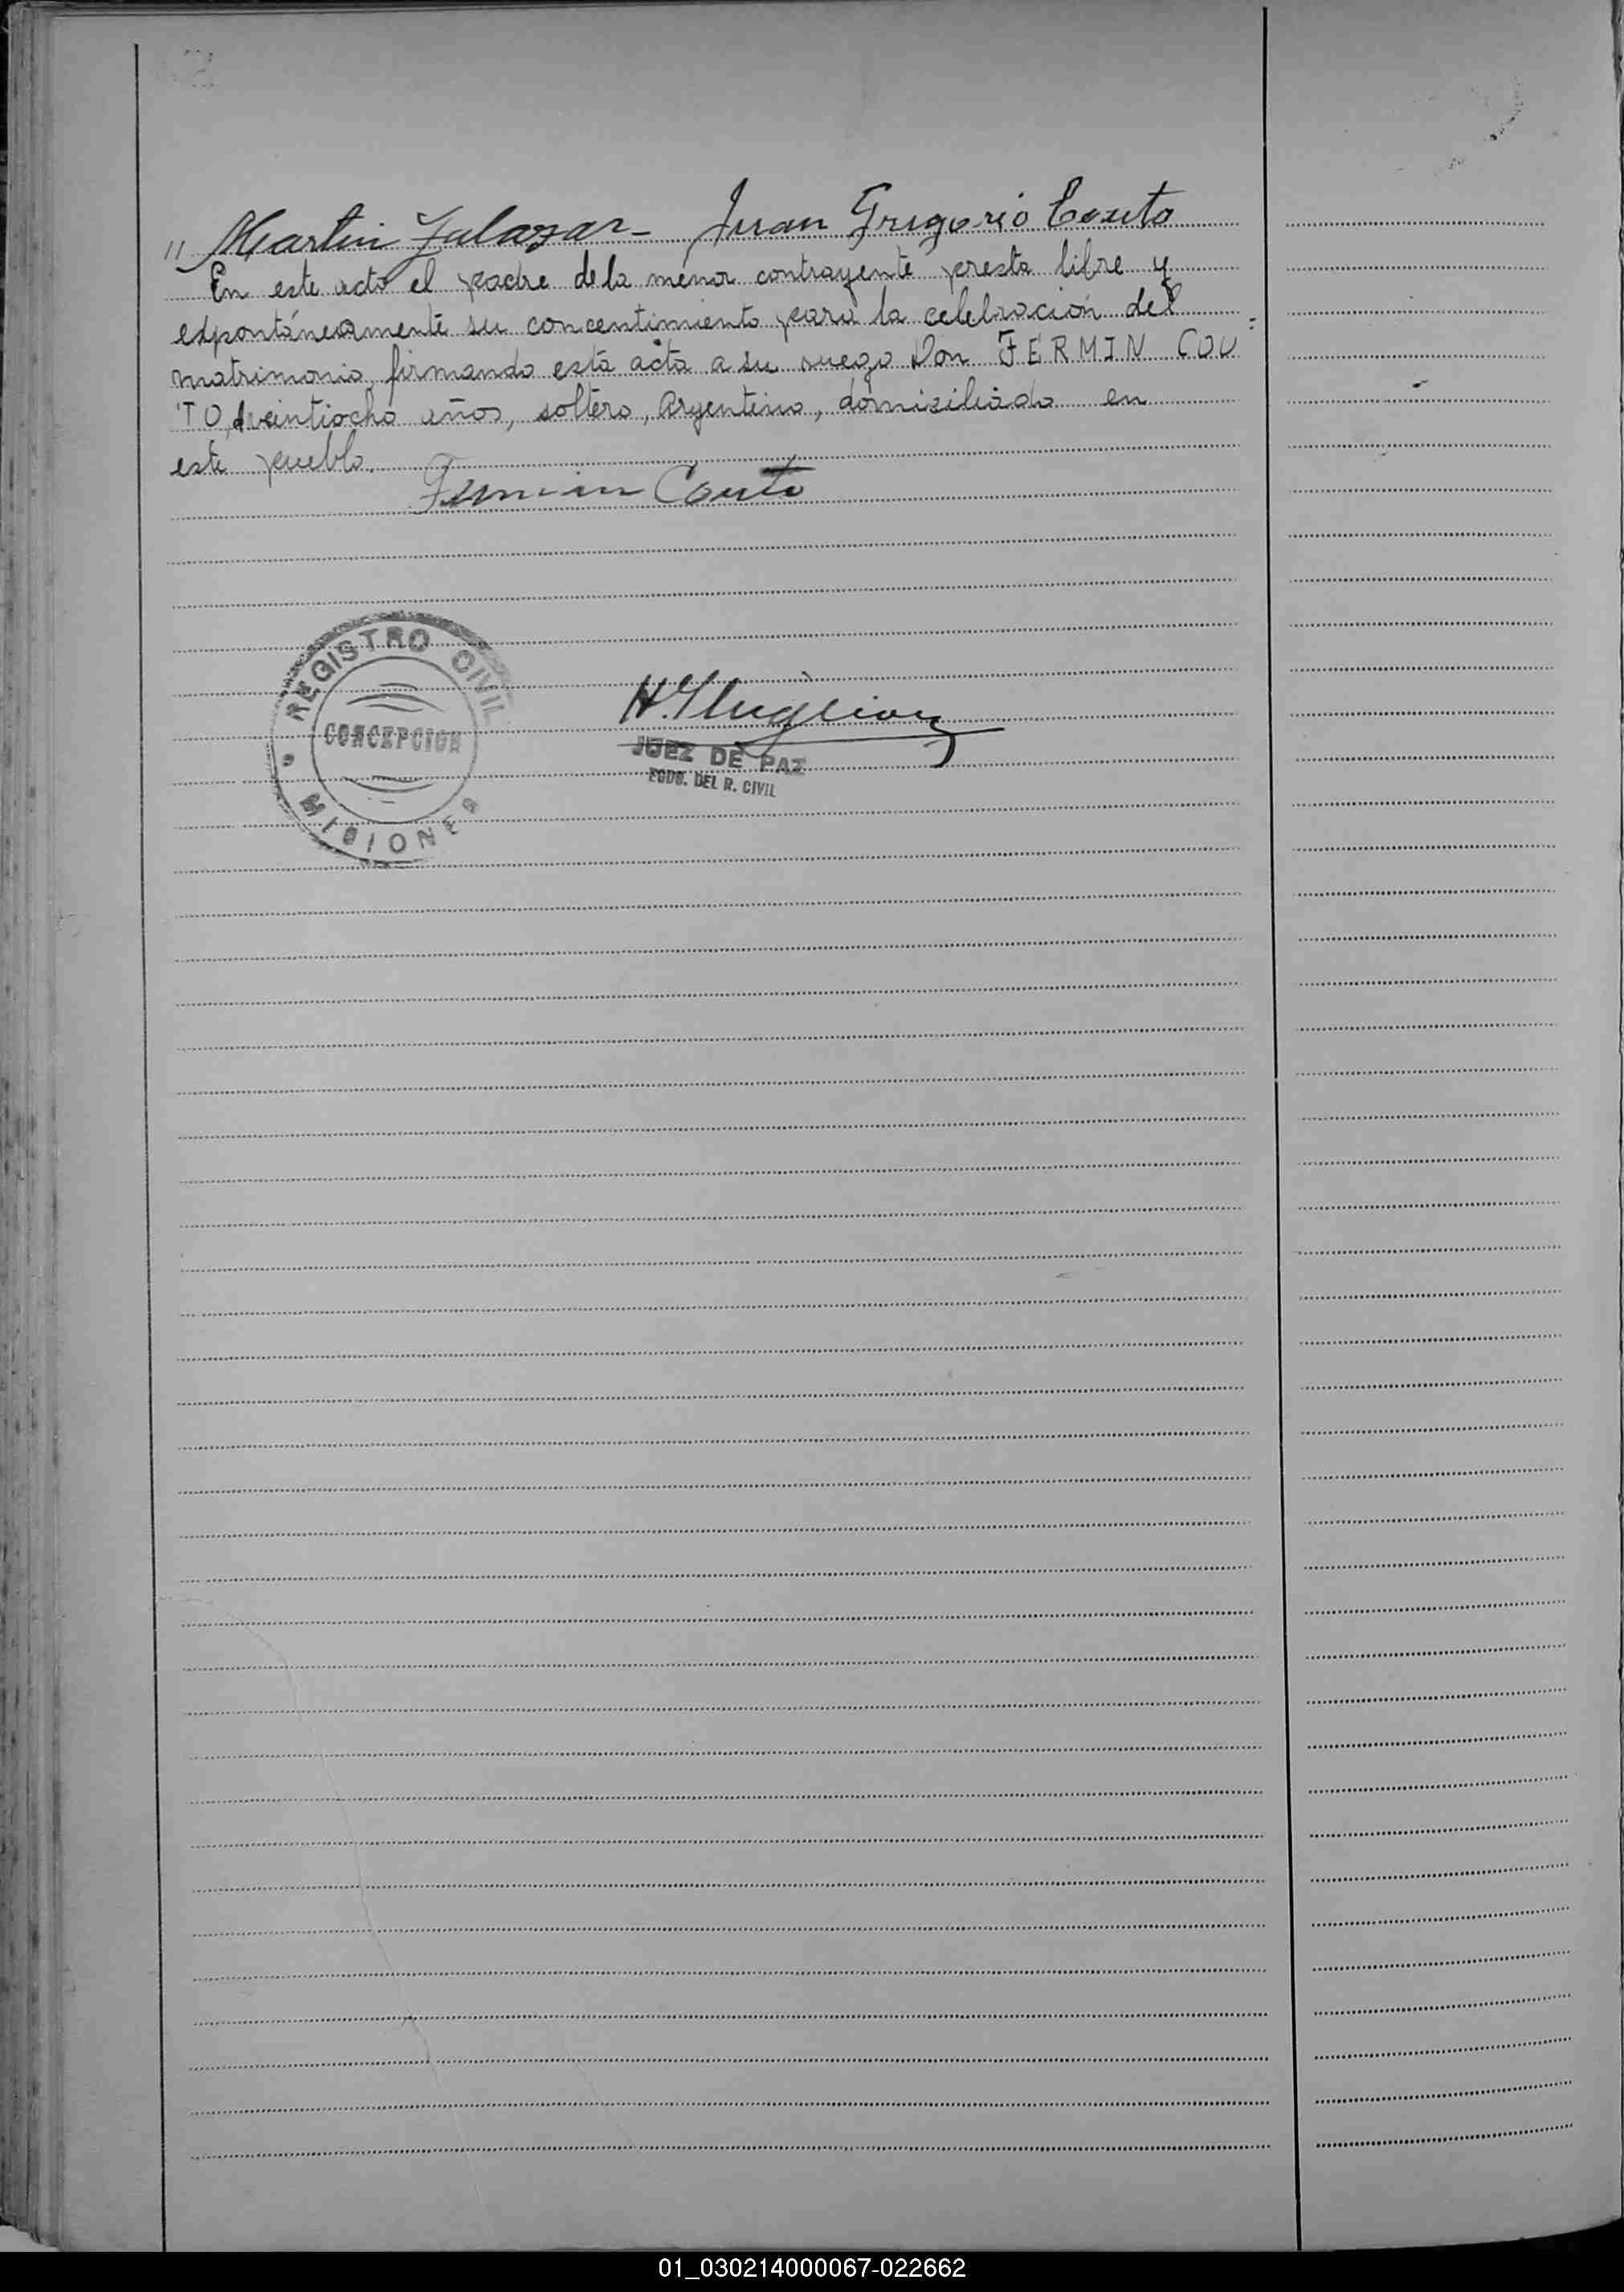 " Martin Salazar - Juan Grigorio Couto
En este acto el padre de la menor contrayente presta libre y
expontáneamente su concentimiento para la celebración del
matrimonio, firmando esta acta a su ruego Don FERMIN COU=
TO, veintiocho años, soltero, Argentino, domiciliado en
este pueblo.
Fermin Couto
REGISTRO CIVIL
CONCEPCION
MISIONES
JUEZ DE PAZ
ECDO. DEL R. CIVIL
01_030214000067-022662